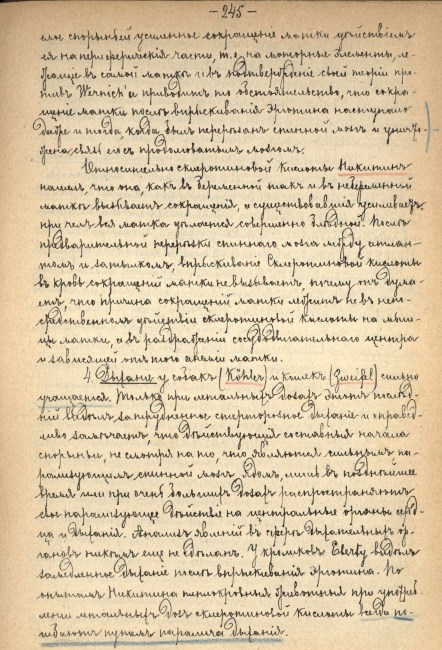 — 245 —
емое спорыньей усиленное сокращеніе матки дѣйствіемъ
ея на периферическія части, т. е. на моторные элементы, ле-
жащіе въ самой маткѣ и въ подтвержденіе своей теоріи про-
тивъ Wernich'а приводитъ то обстоятельство, что сокра-
щеніе матки послѣ впрыскиванія Эрготина наступало
даже и тогда когда былъ перерѣзанъ спинной мозгъ и уничто-
жена связь его съ продолговатымъ мозгомъ.
Относительно склеротиновой кислоты Никитинъ
нашелъ, что она, какъ въ беременной такъ и въ небеременной
маткѣ вызываетъ сокращенія, и существовавшія усиливаетъ,
при чемъ вся матка дѣлается совершенно блѣдной. Послѣ
предварительной перерѣзки спиннаго мозга между атлан-
томъ и затылкомъ, впрыскиваніе Склеротиновой кислоты
въ кровь сокращеній матки не вызываетъ, почему онъ дума-
етъ, что причина сокращеній матки лежитъ не въ непо-
средственномъ дѣйствіи склеротиновой кислоты на мыш-
цы матки, а въ раздраженіи сосудодвигательнаго центра
и зависящей отъ того анеміи матки.
4. Дыханіе у собакъ (Köhler) и кошекъ (Zweifel) сильно
учащается. Только при летальныхъ дозахъ этотъ послѣд-
ній видѣлъ затрудненное стерторозное дыханіе и справед-
ливо замѣчаетъ, что дѣйствующія составныя начала
спорыньи, не смотря на то, что являются сильнымъ па-
рализующимъ спинной мозгъ ядомъ, лишь въ позднѣйшее
время или при очень большихъ дозахъ распространяютъ
свое парализующее дѣйствіе на центральные органы серд-
ца и дыханія. Анализъ явленій въ сферѣ дыхательныхъ ор-
гановъ никѣмъ еще не сдѣланъ. У кроликовъ Eberty видѣлъ
замедленное дыханіе послѣ впрыскиванія Эрготина. По
опытамъ Никитина теплокровныя животныя при употреб-
леніи летальныхъ дозъ склеротиновой кислоты всегда по-
гибаютъ путемъ паралича дыханія.